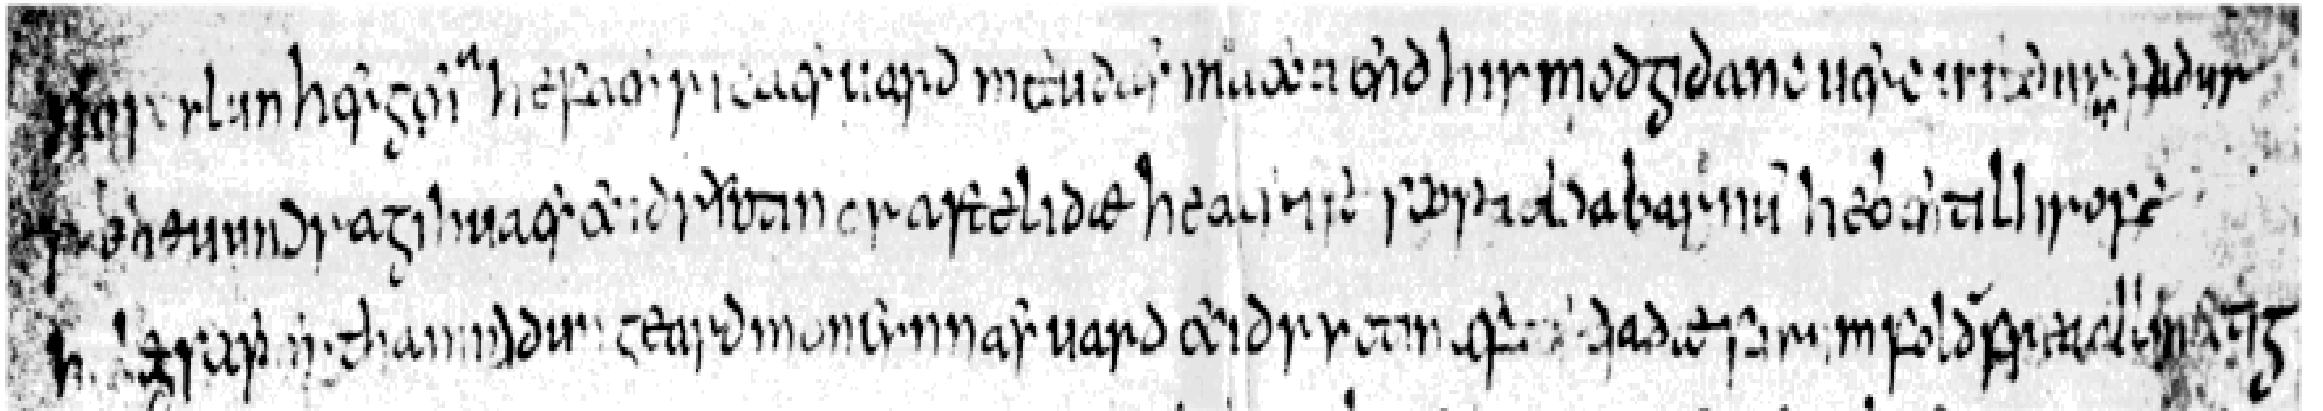 Nu scylun hergan hefaenricaes uard metudæs maecti end his modgidanc uerc uuldurfadur
sue he uundra gihuaes eci dryctin or astelidæ he aerist scop aelda barnū heben til hrofe
haleg scepen tha middungeard moncynnæs uard eci dryctin æfter tiadæ firum foldu frea allmectig